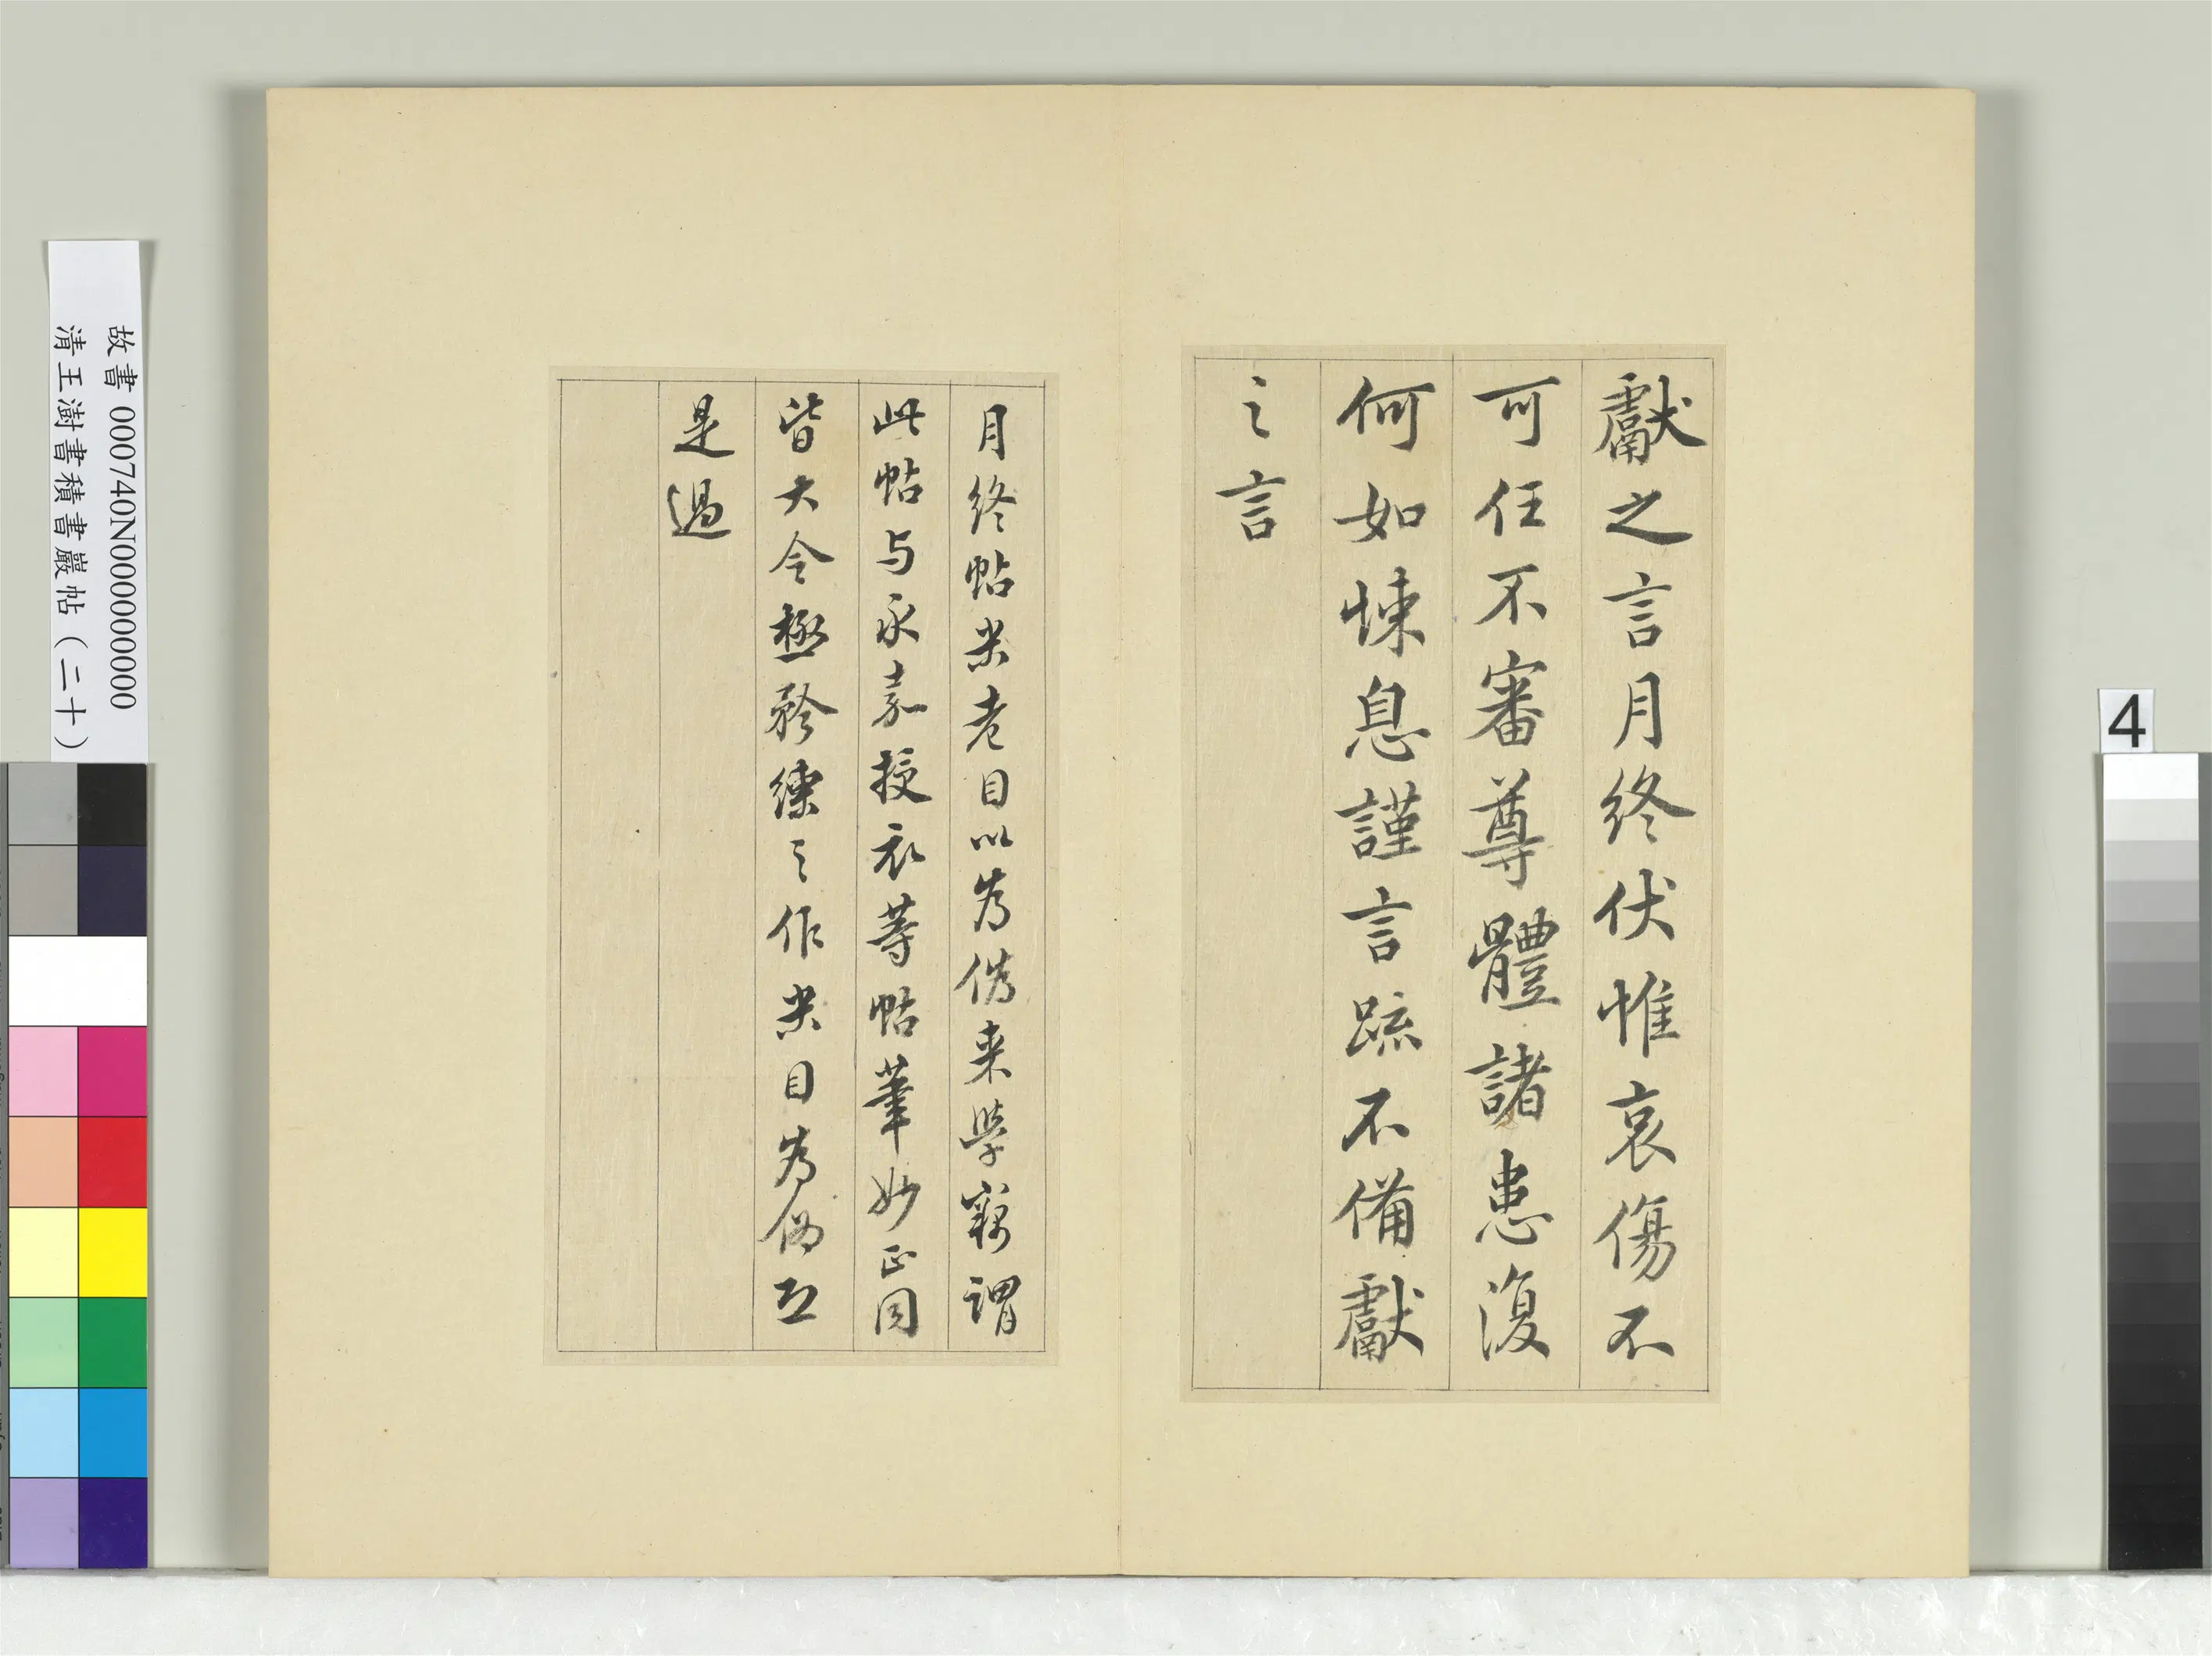 獻之言月終伏惟哀傷不
可任不審尊體諸患復
何如悚息謹言疏不備獻
之言
月終帖米老目以為偽来學竊謂
此帖与永嘉授衣等帖筆妙正同
皆大令極矜練之作米目為偽工
是過
故書 000740N000000000
清王澍書積書巖帖（二十）
4